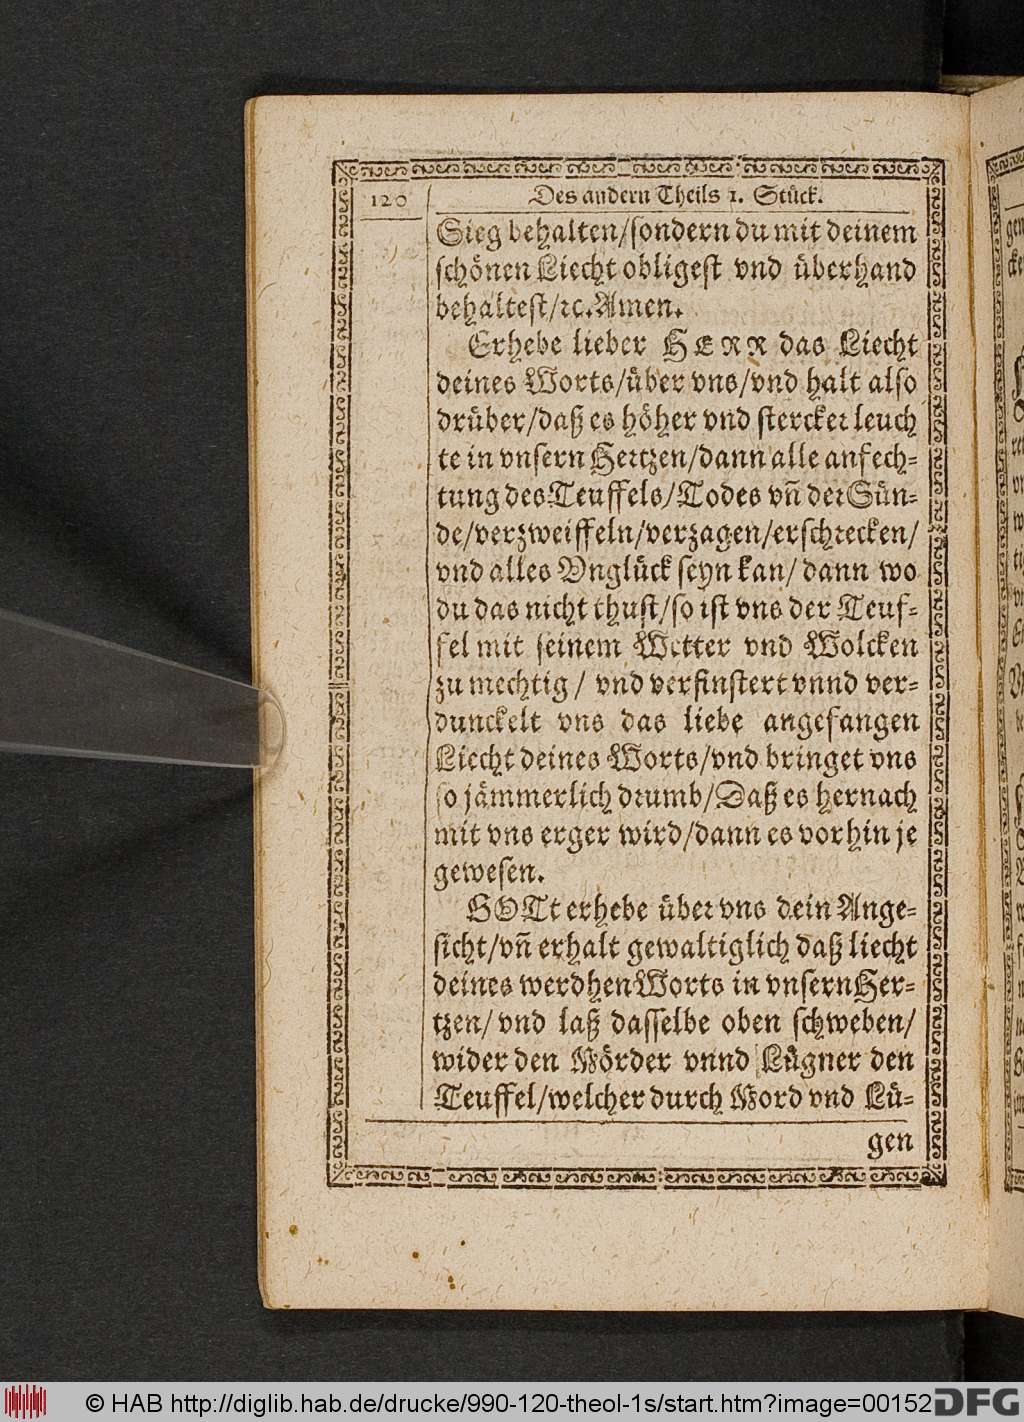 120
Des andern Theils 1. Stück.
Sieg behalten/sondern du mit deinem
schönen Liecht obligest vnd überhand
behaltest/ꝛc. Amen.
Erhebe lieber HERR das Liecht
deines Worts/über vns/vnd halt also
drüber/daß es höher vnd stercker leuch
te in vnsern Hertzen/dann alle anfech-
tung des Teuffels/Todes vñ der Sün-
de/verzweiffeln/verzagen/erschrecken/
vnd alles Vnglück seyn kan/ dann wo
du das nicht thust/so ist vns der Teuf-
fel mit seinem Wetter vnd Wolcken
zu mechtig / vnd verfinstert vnnd ver-
dunckelt vns das liebe angefangen
Liecht deines Worts/vnd bringet vns
so jämmerlich drumb/Daß es hernach
mit vns erger wird/dann es vorhin je
gewesen.
GOTt erhebe über vns dein Ange-
sicht/vñ erhalt gewaltiglich daß liecht
deines werdhen Worts in vnsern Her-
tzen/ vnd laß dasselbe oben schweben/
wider den Mörder vnnd Lügner den
Teuffel/welcher durch Mord vnd Lü-
gen
© HAB http://diglib.hab.de/drucke/990-120-theol-1s/start.htm?image=00152
DFG